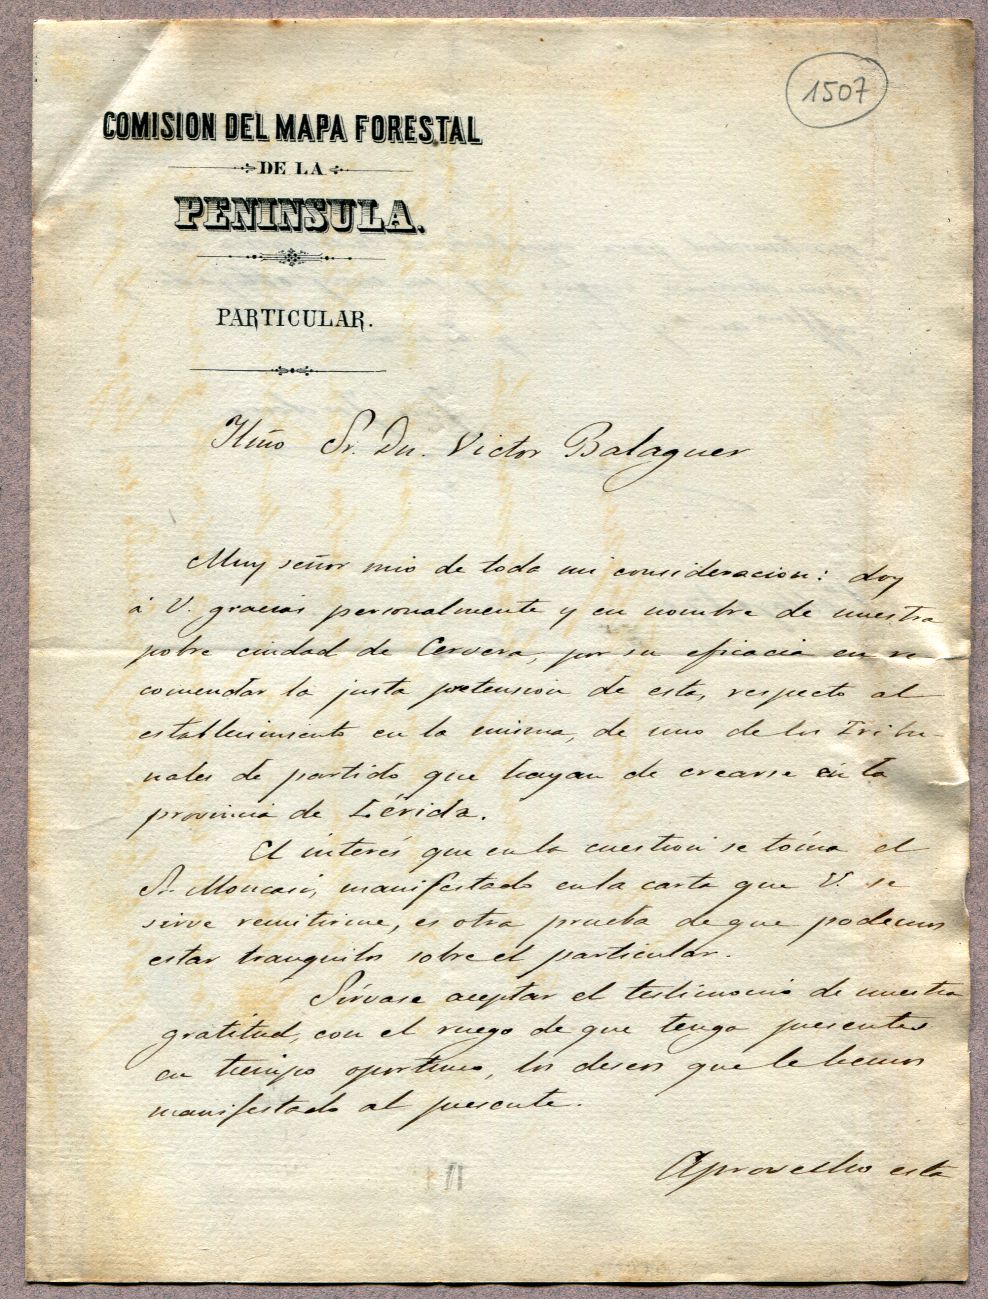 1507
COMISION DEL MAPA FORESTAL
DE LA
PENINSULA.
PARTICULAR.
Ilmo Sr. Dn. Victor Balaguer
Muy señor mio de toda mi consideracion: doy
á V. gracias personalmente y en nombre de nuestra
pobre ciudad de Cervera, por su eficacia en re
comendar la justa pretension de esta, respecto al
establecimiento en la misma, de uno de los Tribu-
nales de partido que hayan de crearse en la
provincia de Lérida.
El interés que en la cuestion se tóma el
Sr. Moncasi, manifestado en la carta que V. se
sirve remitirme, es otra prueba de que podemos
estar tranquilos sobre el particular.
Sírvase aceptar el testimonio de nuestra
gratitud, con el ruego de que tenga presentes
en tiempo oportuno, los deseos que le hemos
manifestado al presente.
Aprovecho esta